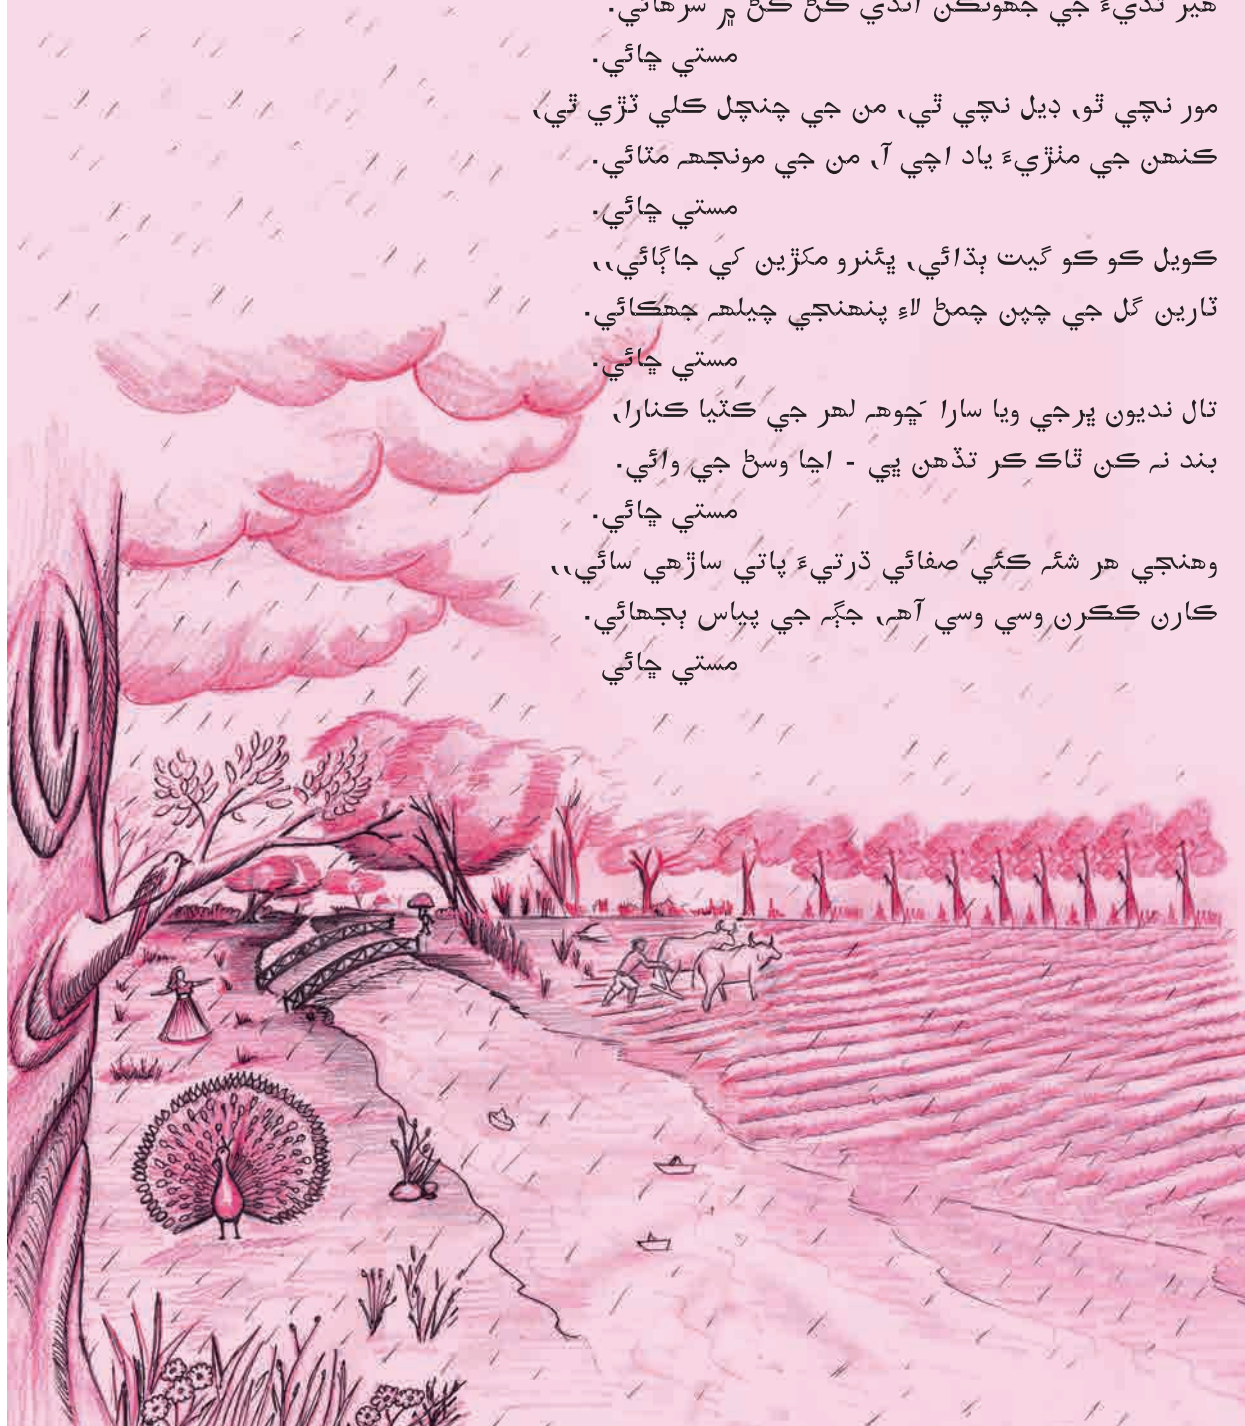 هير ٿڌيءَ جي جھونڪن آندي ڪڻ ڪڻ ۾ سرهائي.
مستي ڇائي.
مور نچي ٿو، ڊيل نچي ٿي، من جي چنچل ڪلي ٽڙي ٿي،
ڪنهن جي مٺڙيءَ ياد اچي آ، من جي مونجھہ مٽائي.
مستي ڇائي.
ڪويل ڪو ڪو گيت ٻڌائي، ڀئنرو مکڙين کي جاڳائي،،
ٽارين گل جي چپن چمڻ لاءِ پنهنجي چيلھہ جھڪائي.
مستي ڇائي.
تال نديون ڀرجي ويا سارا ڇَوهہ لهر جي ڪٽيا ڪنارا،
بند نہ ڪن ٿاڪ ڪر تڏهن ڀي - اڃا وسڻ جي وائي.
مستي ڇائي.
وهنجي هر شئہ ڪئي صفائي ڌرتيءَ پاتي ساڙهي سائي،،
ڪارن ڪڪرن وسي وسي آهہ، جڳہ جي پياس ٻجھائي.
مستي ڇائي